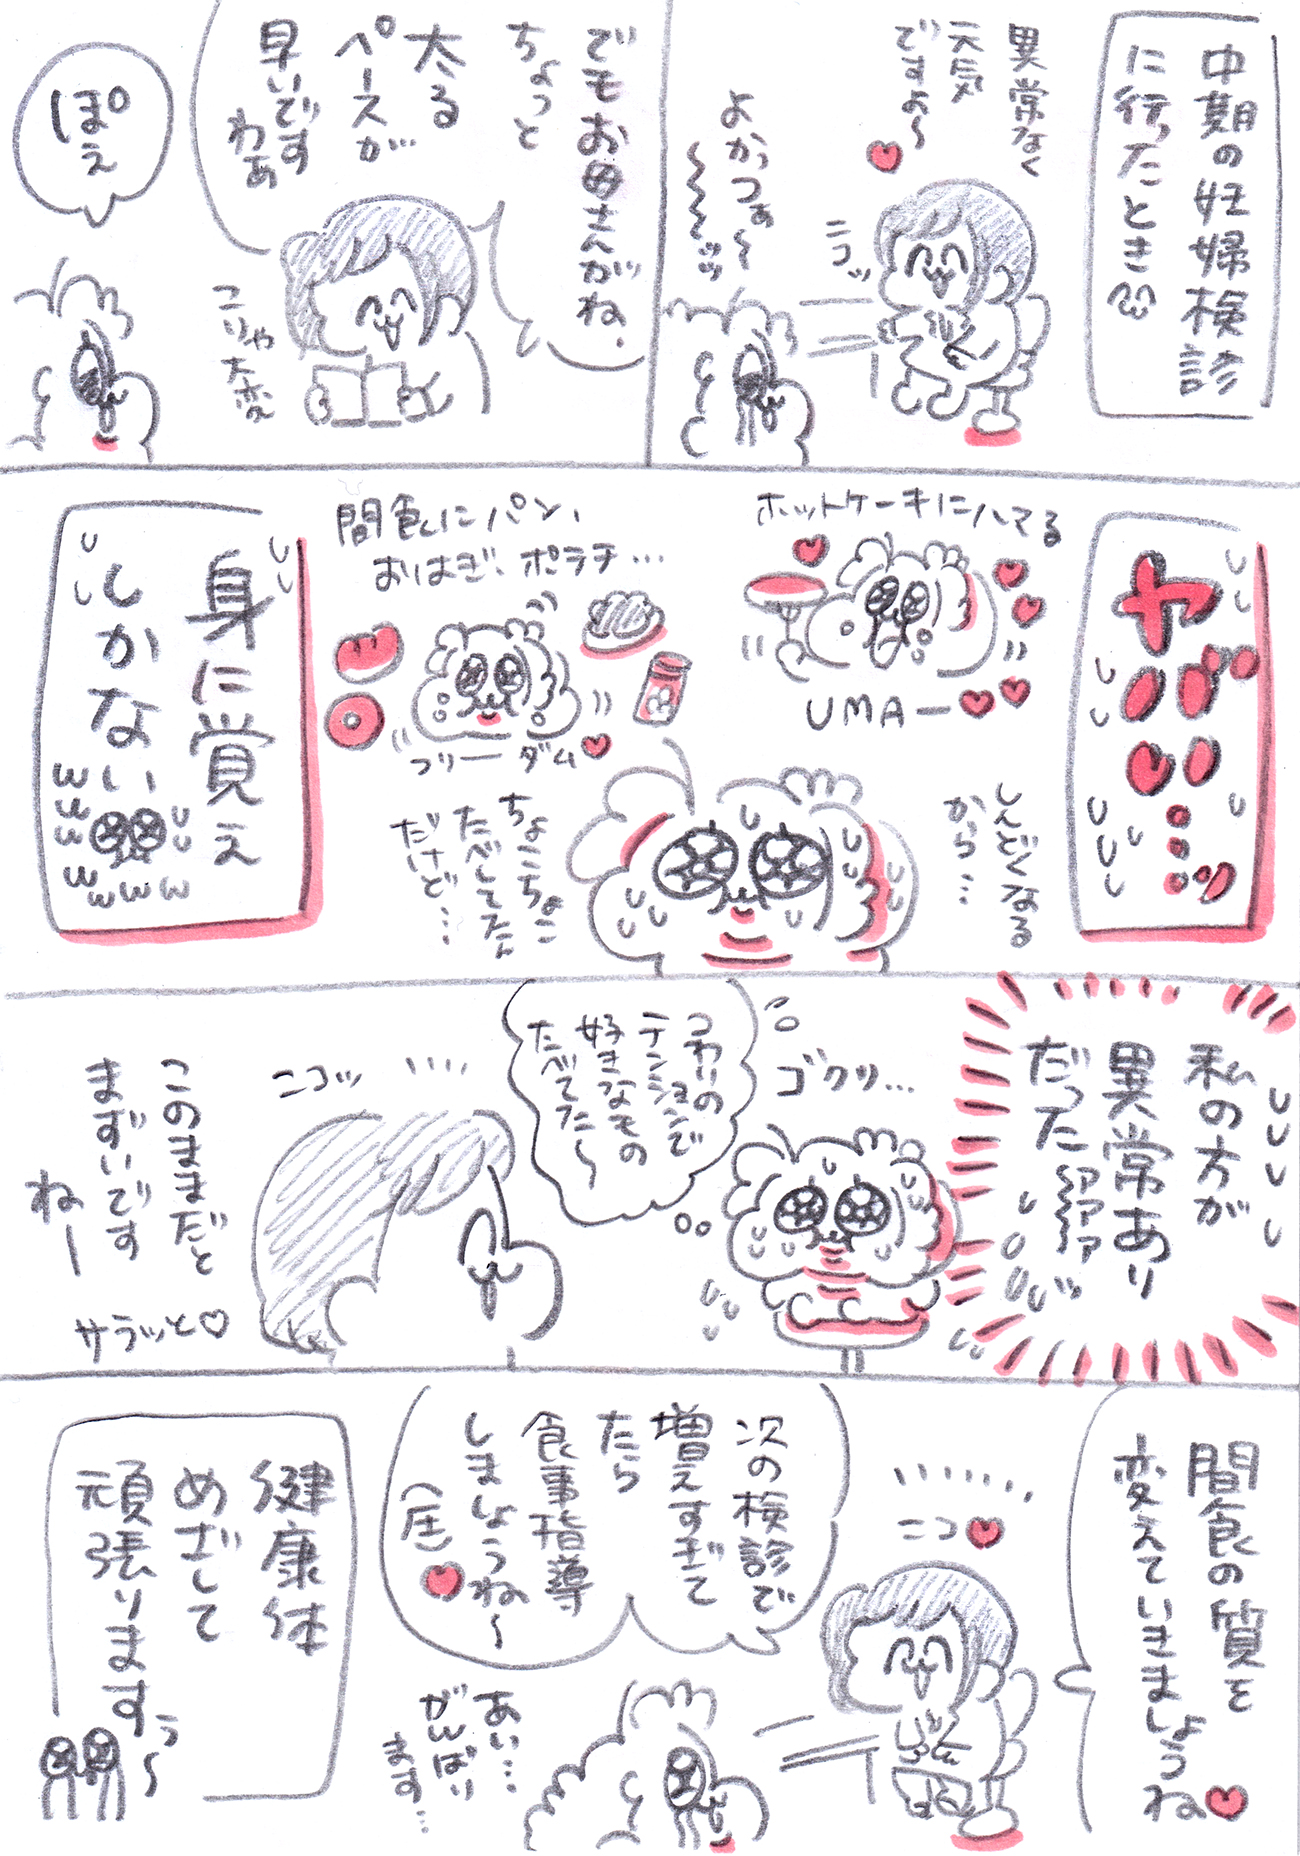 中期の妊婦検診
に行ったとき
異常なく
元気
ですよ〜
ニコッ
よかっつぁ〜
〜〜〜ッッ
でもお母さんがね、
ちょっと
太る
ペースが
早いです
わぁ
こりゃ大変
ぽぇ
ヤバい…ッ
ホットケーキにハマる
UMAー
しんどくなる
から…
間食にパン、
おはぎ、ポテチ…
フリーダム
ちょこちょこ
たべしてたん
だけど…
身に覚え
しかない
wwwwwww
私の方が
異常あり
だった
ゴクリ…
つわりの
テンションで
好きなもの
たべてた〜
ニコッ
このままだと
まずいです
ねー
サラッと♡
間食の質を
変えていきましょうね
ニコ
次の検診で
増えすぎて
たら
食事指導
しましょうね〜
(圧)
あい…
がんばり
ます…
健康体
めざして
頑張ります
う〜